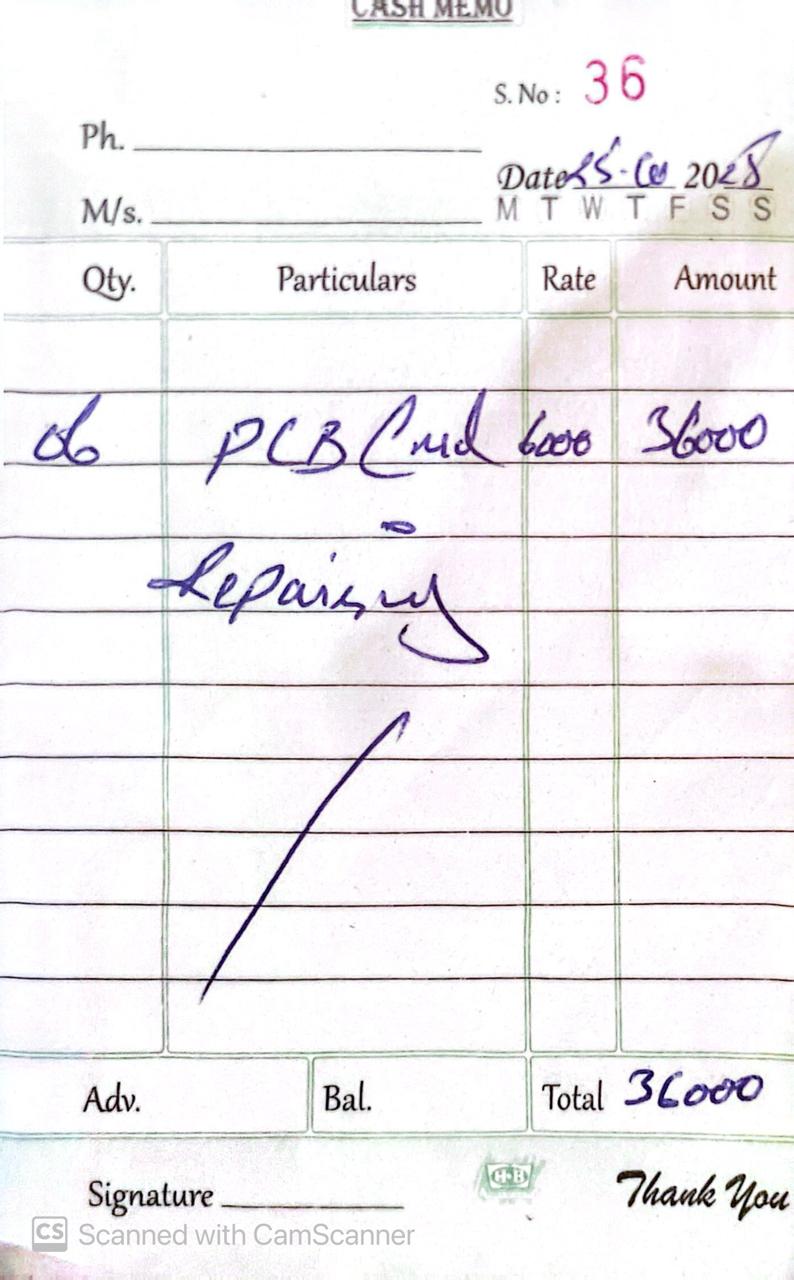 CASH MEMO
S. No : 36
Ph.
Date 2025
M/s.
M T W T F S S
Qty. Particulars Rate Amount
06 PCB Card 6000 36000
Repairing
Adv. Bal. Total 36000
Signature H-B Thank You
CS Scanned with CamScanner